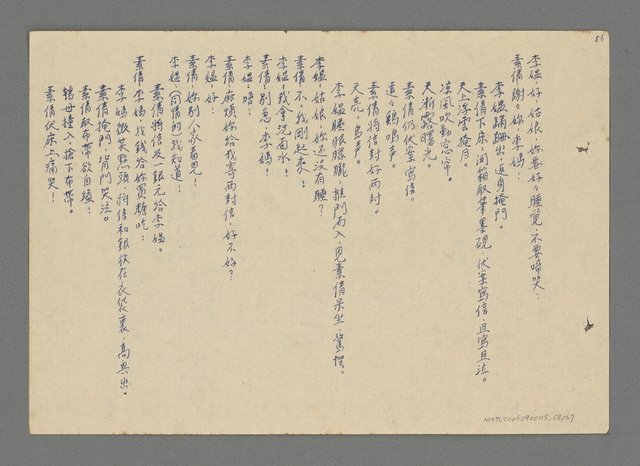 56
李媼:好,姑娘,妳要好々睡覺,不要啼哭:
素倩:謝々妳,李媽:
李媼蹣跚出,返身掩門。
素倩下床,開箱取筆墨硯,伏案寫信,且寫且泣。
天上浮雲掩月。
涼風吹動窓帘。
天漸露曙光。
素倩仍伏案寫信。
遠々鷄鳴声。
素倩將信封好两封。
天亮,鳥声。
李媼睡眼朦朧,推門而入,見素倩呆坐,驚愕。
李媼:姑娘,妳还沒有睡?
素倩:不,我剛起來:
李媼:我拿洗面水:
素倩:別急,李媽!
李媼:唔:
素倩:麻煩妳給我寄两封信,好不好?
李媼:好:
素倩:妳別人家看見!
李媼:同情的 我知道:
素倩將信及一銀元給李媼。
素倩:李媽,找錢給妳買糖吃:
李媽微笑點頭,將信和銀放在衣袋裏,高興出。
素倩掩門,背門哭泣。
素倩取布帶欲自縊:
鴇母撞入,搶下布帶。
素倩伏床上痛哭!
NMTL20060900115,58/67